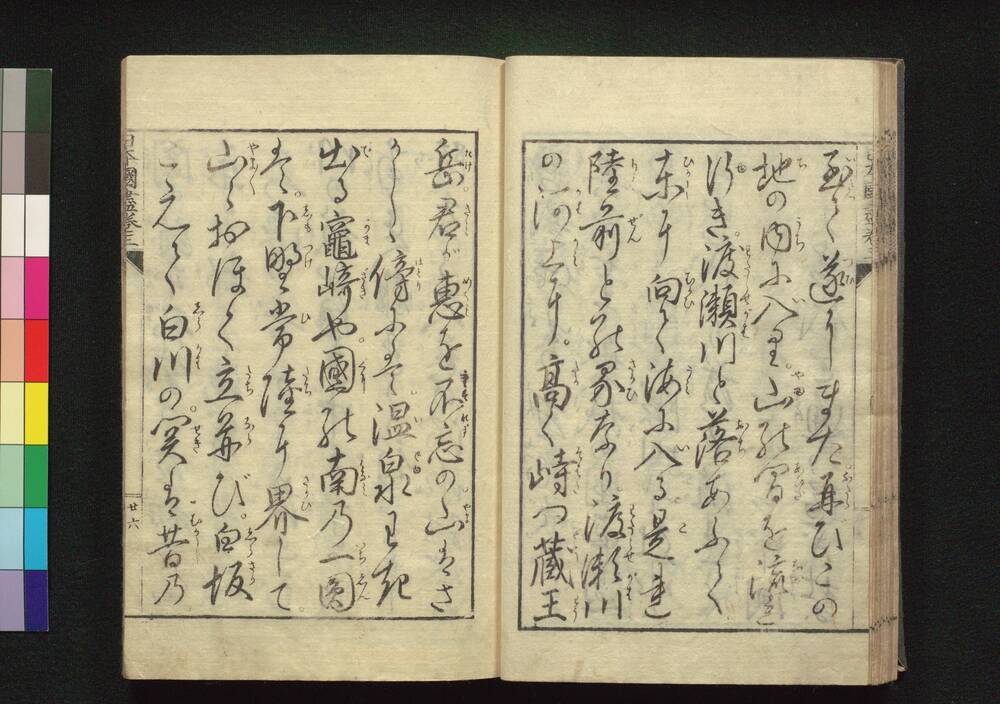 至りて遂にまた再びこの
地の内に入り。山の間を流れ
行き。渡瀬川と落あふて
東に向て海に入る。是れ
陸前との界なり。渡瀬川
の河上に。高く峙つ蔵王
岳。君が惠を不忘の山はさ
かしく傍には。温泉わき
出る竈崎や。國の南の一圓
は。下野常陸に界して。
山々おほく立并び。白坂
こえて白川の。関は昔の
日本國盡巻三
廿六